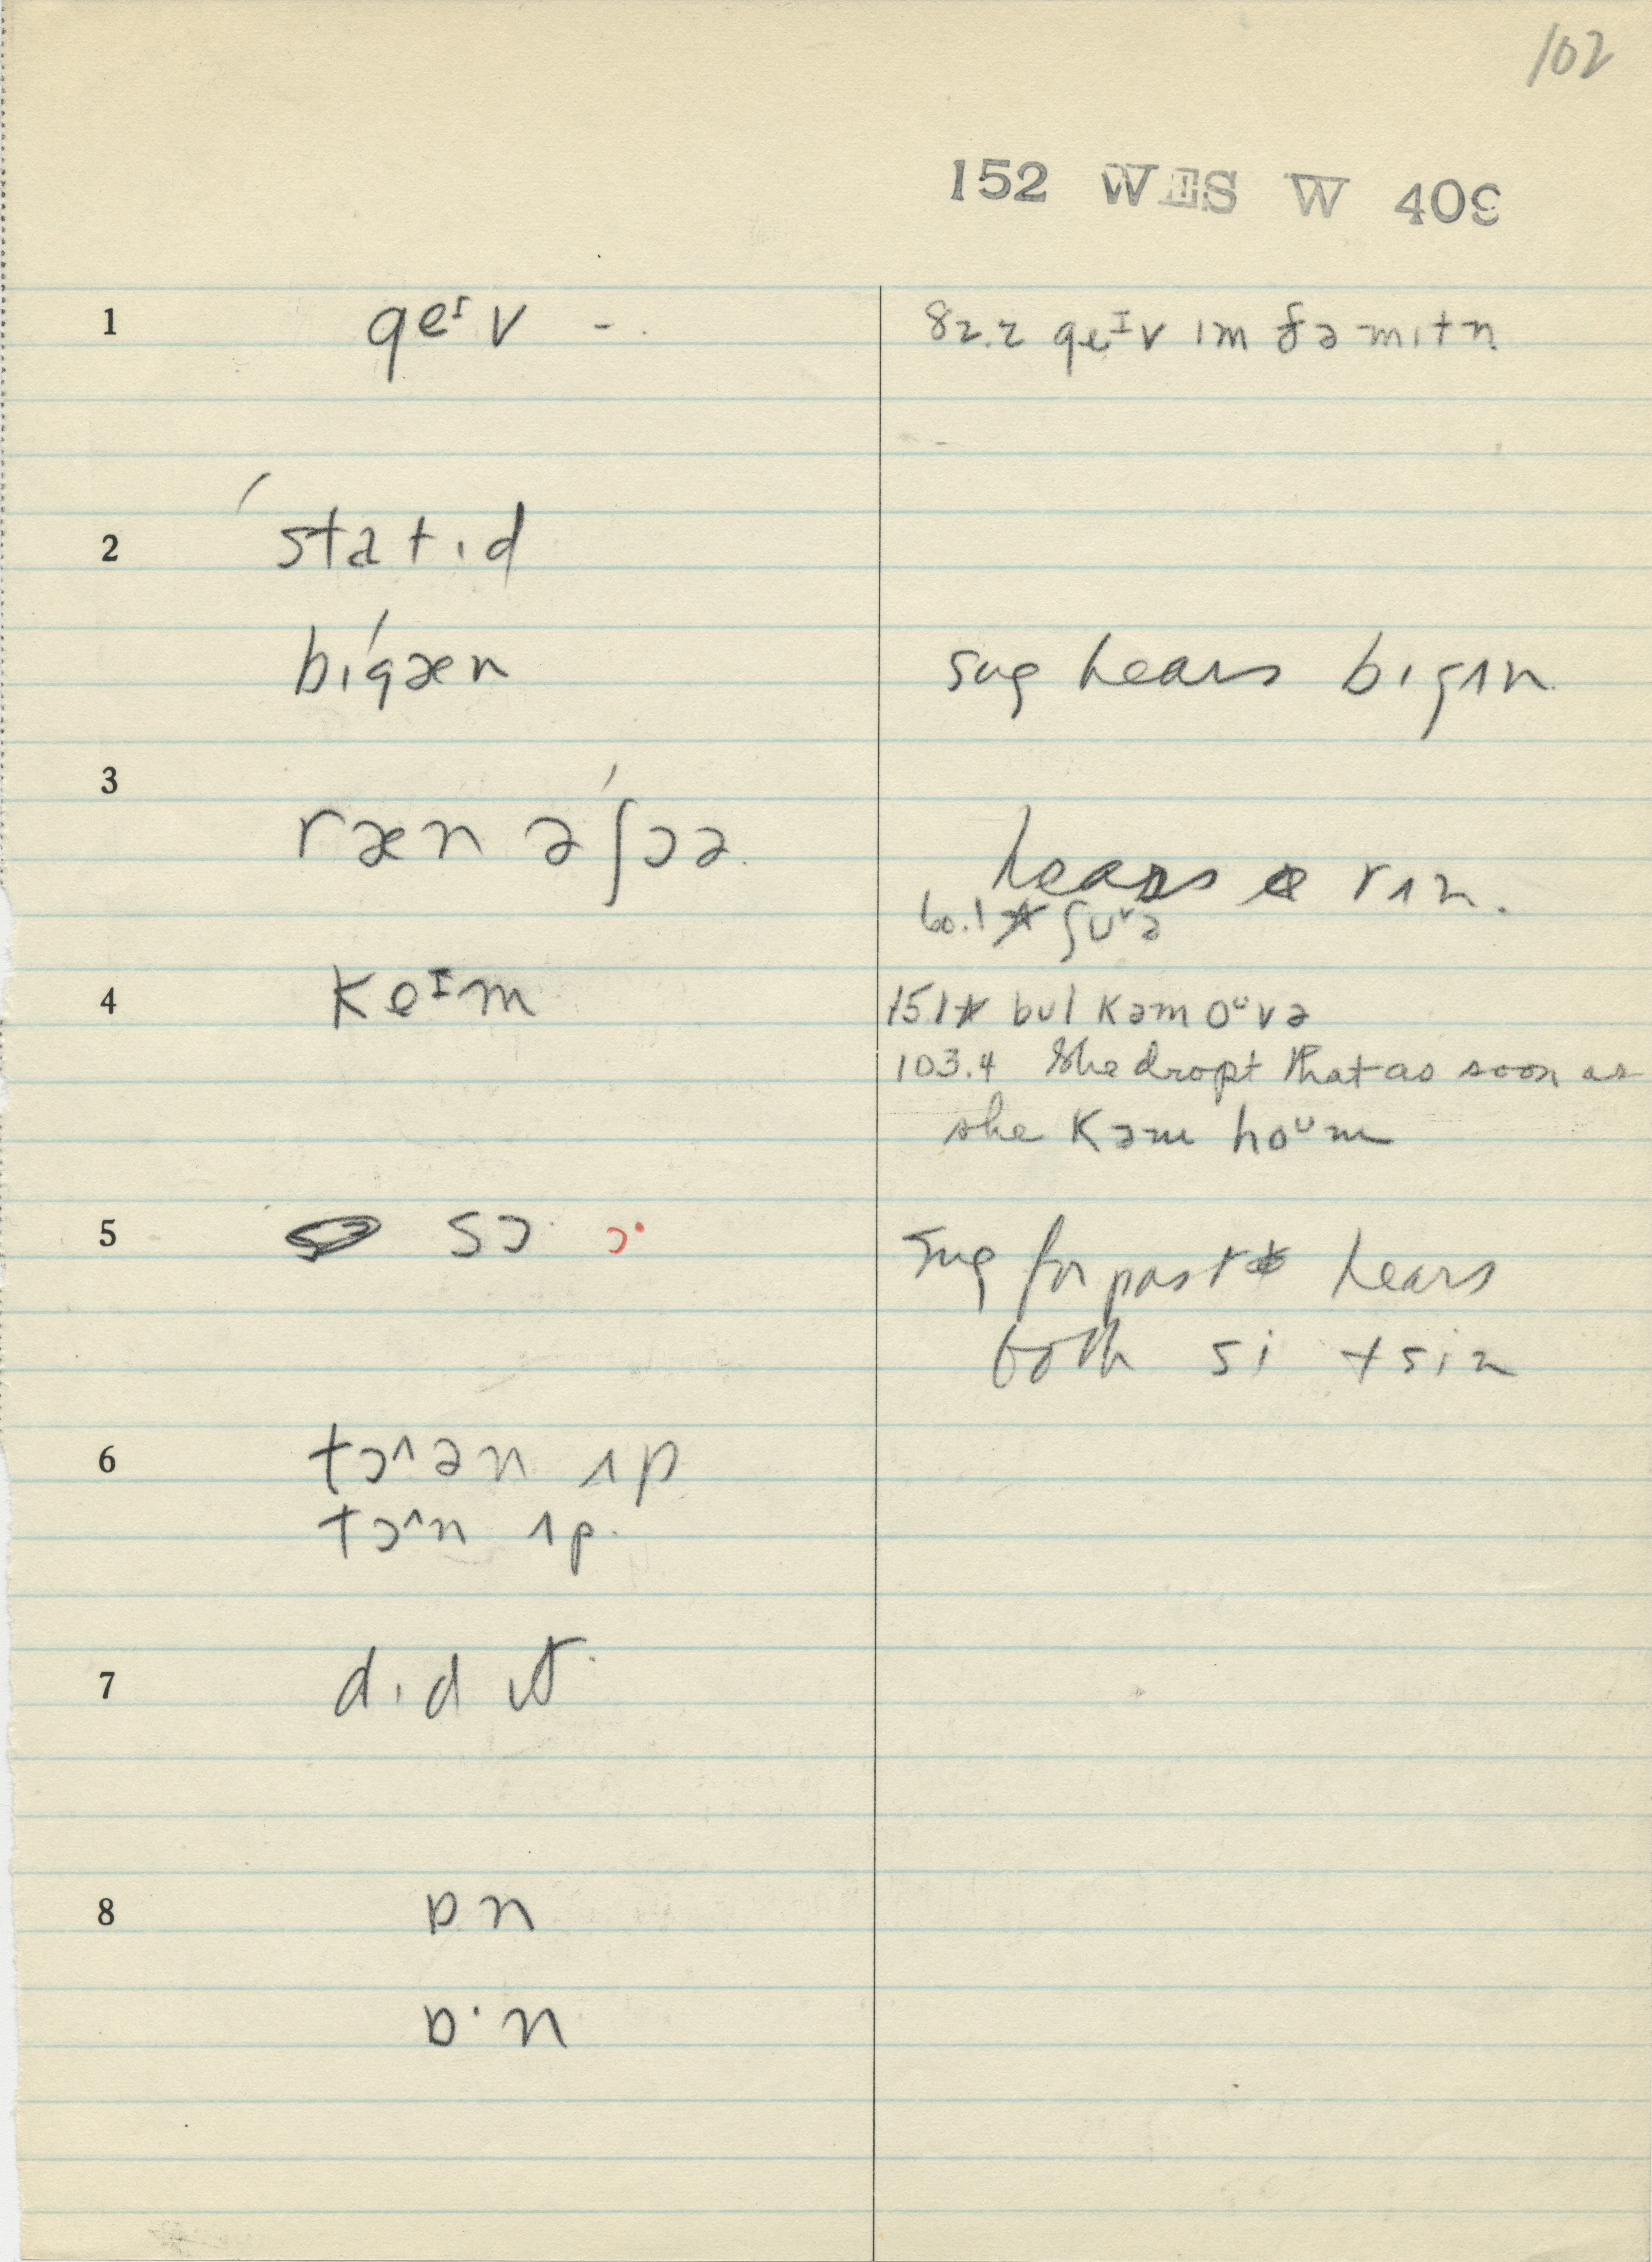 102
152 WES W 409
1 geᴵv -. 82.2 geᴵv ɪm ðə mɪtn
2 ˈstatɪd
bɪˈgæn sug hears bɪgʌn
3
ræn əˈʃɔə. hears rʌn.
60.1 * ʃᴜᵛə
4 keᴵm 151* bʌt kəm oᵘvə
103.4 She dropt that as soon as
she kəm hoᵘm
5 sɔ· ɔ· Sug for past hears
both si + sin
6 tɔ^ən ʌp
tɔ^n ʌp.
7 dɪd ɪt.
8 ɒn
ɒ·n